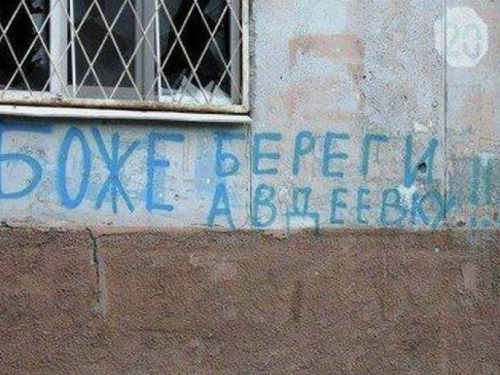 20
БОЖЕ БЕРЕГИ
АВДЕЕВКУ!!